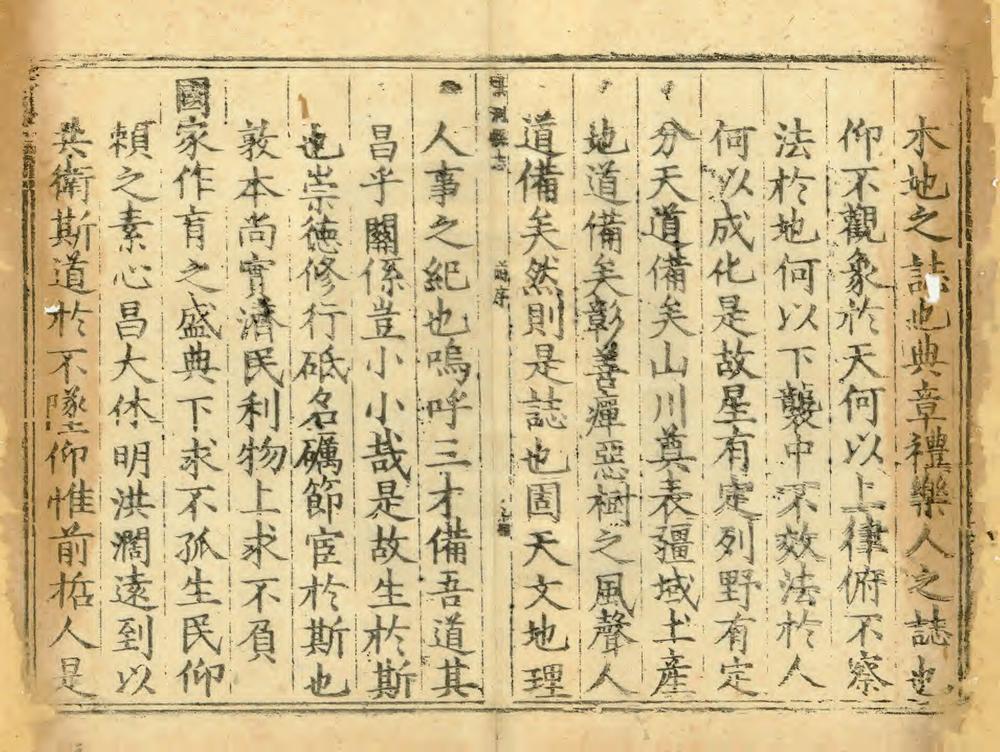 木地之誌也典章禮樂人之誌也
仰不觀象於天何以上律俯不察
法於地何以下襲中不效法於人
何以成化是故星有定列野有定
分天道備矣山川奠表疆域土產
地道備矣彰善癉惡樹之風聲人
道備矣然則是誌也固天文地理
縣志
序
人事之紀也嗚呼三才備吾道其
昌乎關係豈小小哉是故生於斯
也崇德修行砥名礪節宦於斯也
敦本尚實濟民利物上求不負
國家作育之盛典下求不孤生民仰
賴之素心昌大休明洪濶遠到以
共衛斯道於不墜仰惟前哲人是